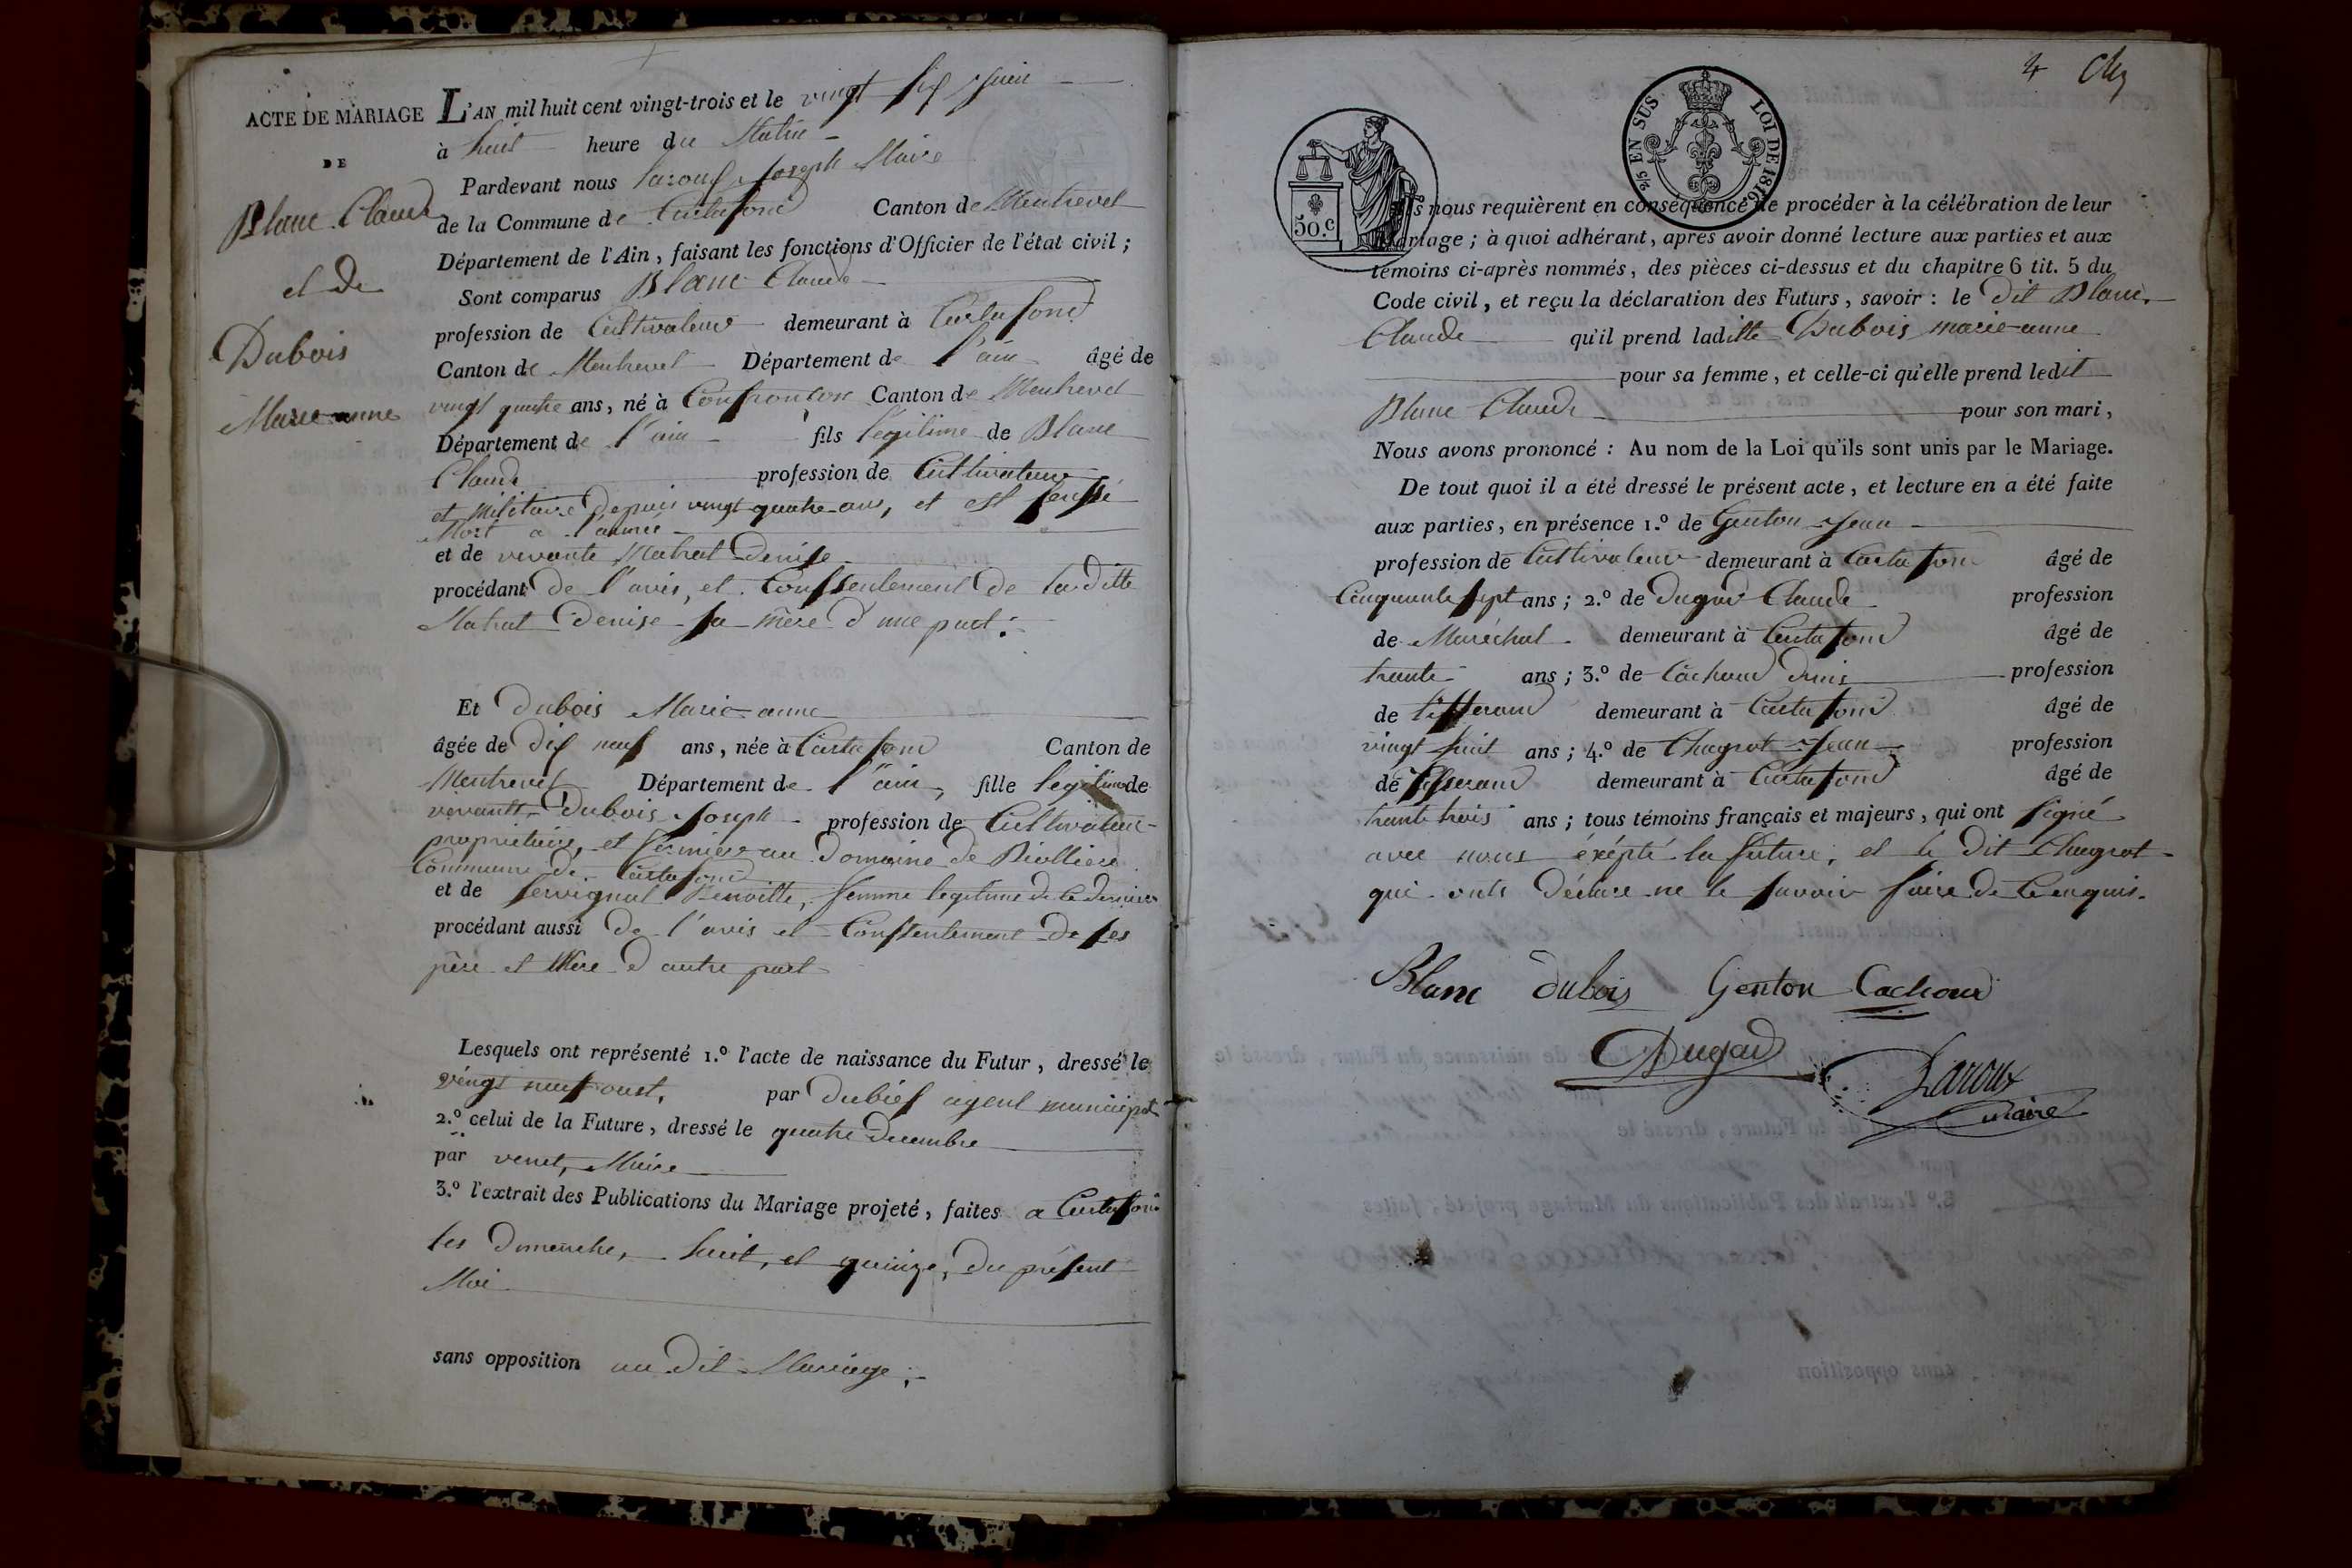 ACTE DE MARIAGE
DE
Blanc Claude
et de
Dubois
Marie anne
L'AN mil huit cent vingt-trois et le vingt six Juin
à huit heure du Matin
Pardevant nous Laroux Joseph Maire
de la Commune de Curtafond Canton de Montrevel
Département de l'Ain, faisant les fonctions d'Officier de l'état civil ;
Sont comparus Blanc Claude
profession de Cultivateur demeurant à Curtafond
Canton de Montrevel Département de l'ain âgé de
vingt quatre ans, né à Confrançon Canton de Montrevel
Département de l'ain fils légitime de Blanc
Claude profession de Cultivateur
et Militaire depuis vingt quatre ans, et est sensé
Mort a l'armée
et de vivante Mahat Denise
procédant de l'avis, et Consentement de la ditte
Mahat Denise sa mère d'une part :
Et Dubois Marie anne
âgée de dix neuf ans, née à Curtafond Canton de
Montrevel Département de l'ain, fille legitime de
vivants Dubois Joseph profession de Cultivateur
propriétaire, et fermier au Domaine de Riottier
Commune de Curtafond
et de Servignat Benoitte, femme legitime de ce dernier
procédant aussi de l'avis et Consentement de ses
père et Mère d'autre part
Lesquels ont représenté 1.º l'acte de naissance du Futur, dressé le
vingt neuf oust, par Dubief agent municipal
2.º celui de la Future, dressé le quatre Decembre
par venet, Maire
3.º l'extrait des Publications du Mariage projeté, faites a Curtafond
les Dimanche, huit, et quinze, du présent
Moi
sans opposition au dit Mariage ;
4
EN SUS LOI DE 1816
50.c
nous requièrent en conséquence de procéder à la célébration de leur
Mariage ; à quoi adhérant, après avoir donné lecture aux parties et aux
témoins ci-après nommés, des pièces ci-dessus et du chapitre 6 tit. 5 du
Code civil, et reçu la déclaration des Futurs, savoir : le dit Blanc
Claude qu'il prend laditte Dubois marie anne
pour sa femme, et celle-ci qu'elle prend ledit
Blanc Claude pour son mari,
Nous avons prononcé : Au nom de la Loi qu'ils sont unis par le Mariage.
De tout quoi il a été dressé le présent acte, et lecture en a été faite
aux parties, en présence 1.º de Genton Jean
profession de Cultivateur demeurant à Curtafond âgé de
Cinquante sept ans ; 2.º de Dugad Claude profession
de Maréchal demeurant à Curtafond âgé de
trente ans ; 3.º de Cachoud Denis profession
de tisserand demeurant à Curtafond âgé de
vingt huit ans ; 4.º de Chagrot Jean profession
de tisserand demeurant à Curtafond âgé de
trente trois ans ; tous témoins français et majeurs, qui ont signé
avec nous éxépté la future, et le dit Chagrot
qui onts déclaré ne le savoir faire de ce enquis.
Blanc Dubois Genton Cachoud
Dugad
Laroux
maire